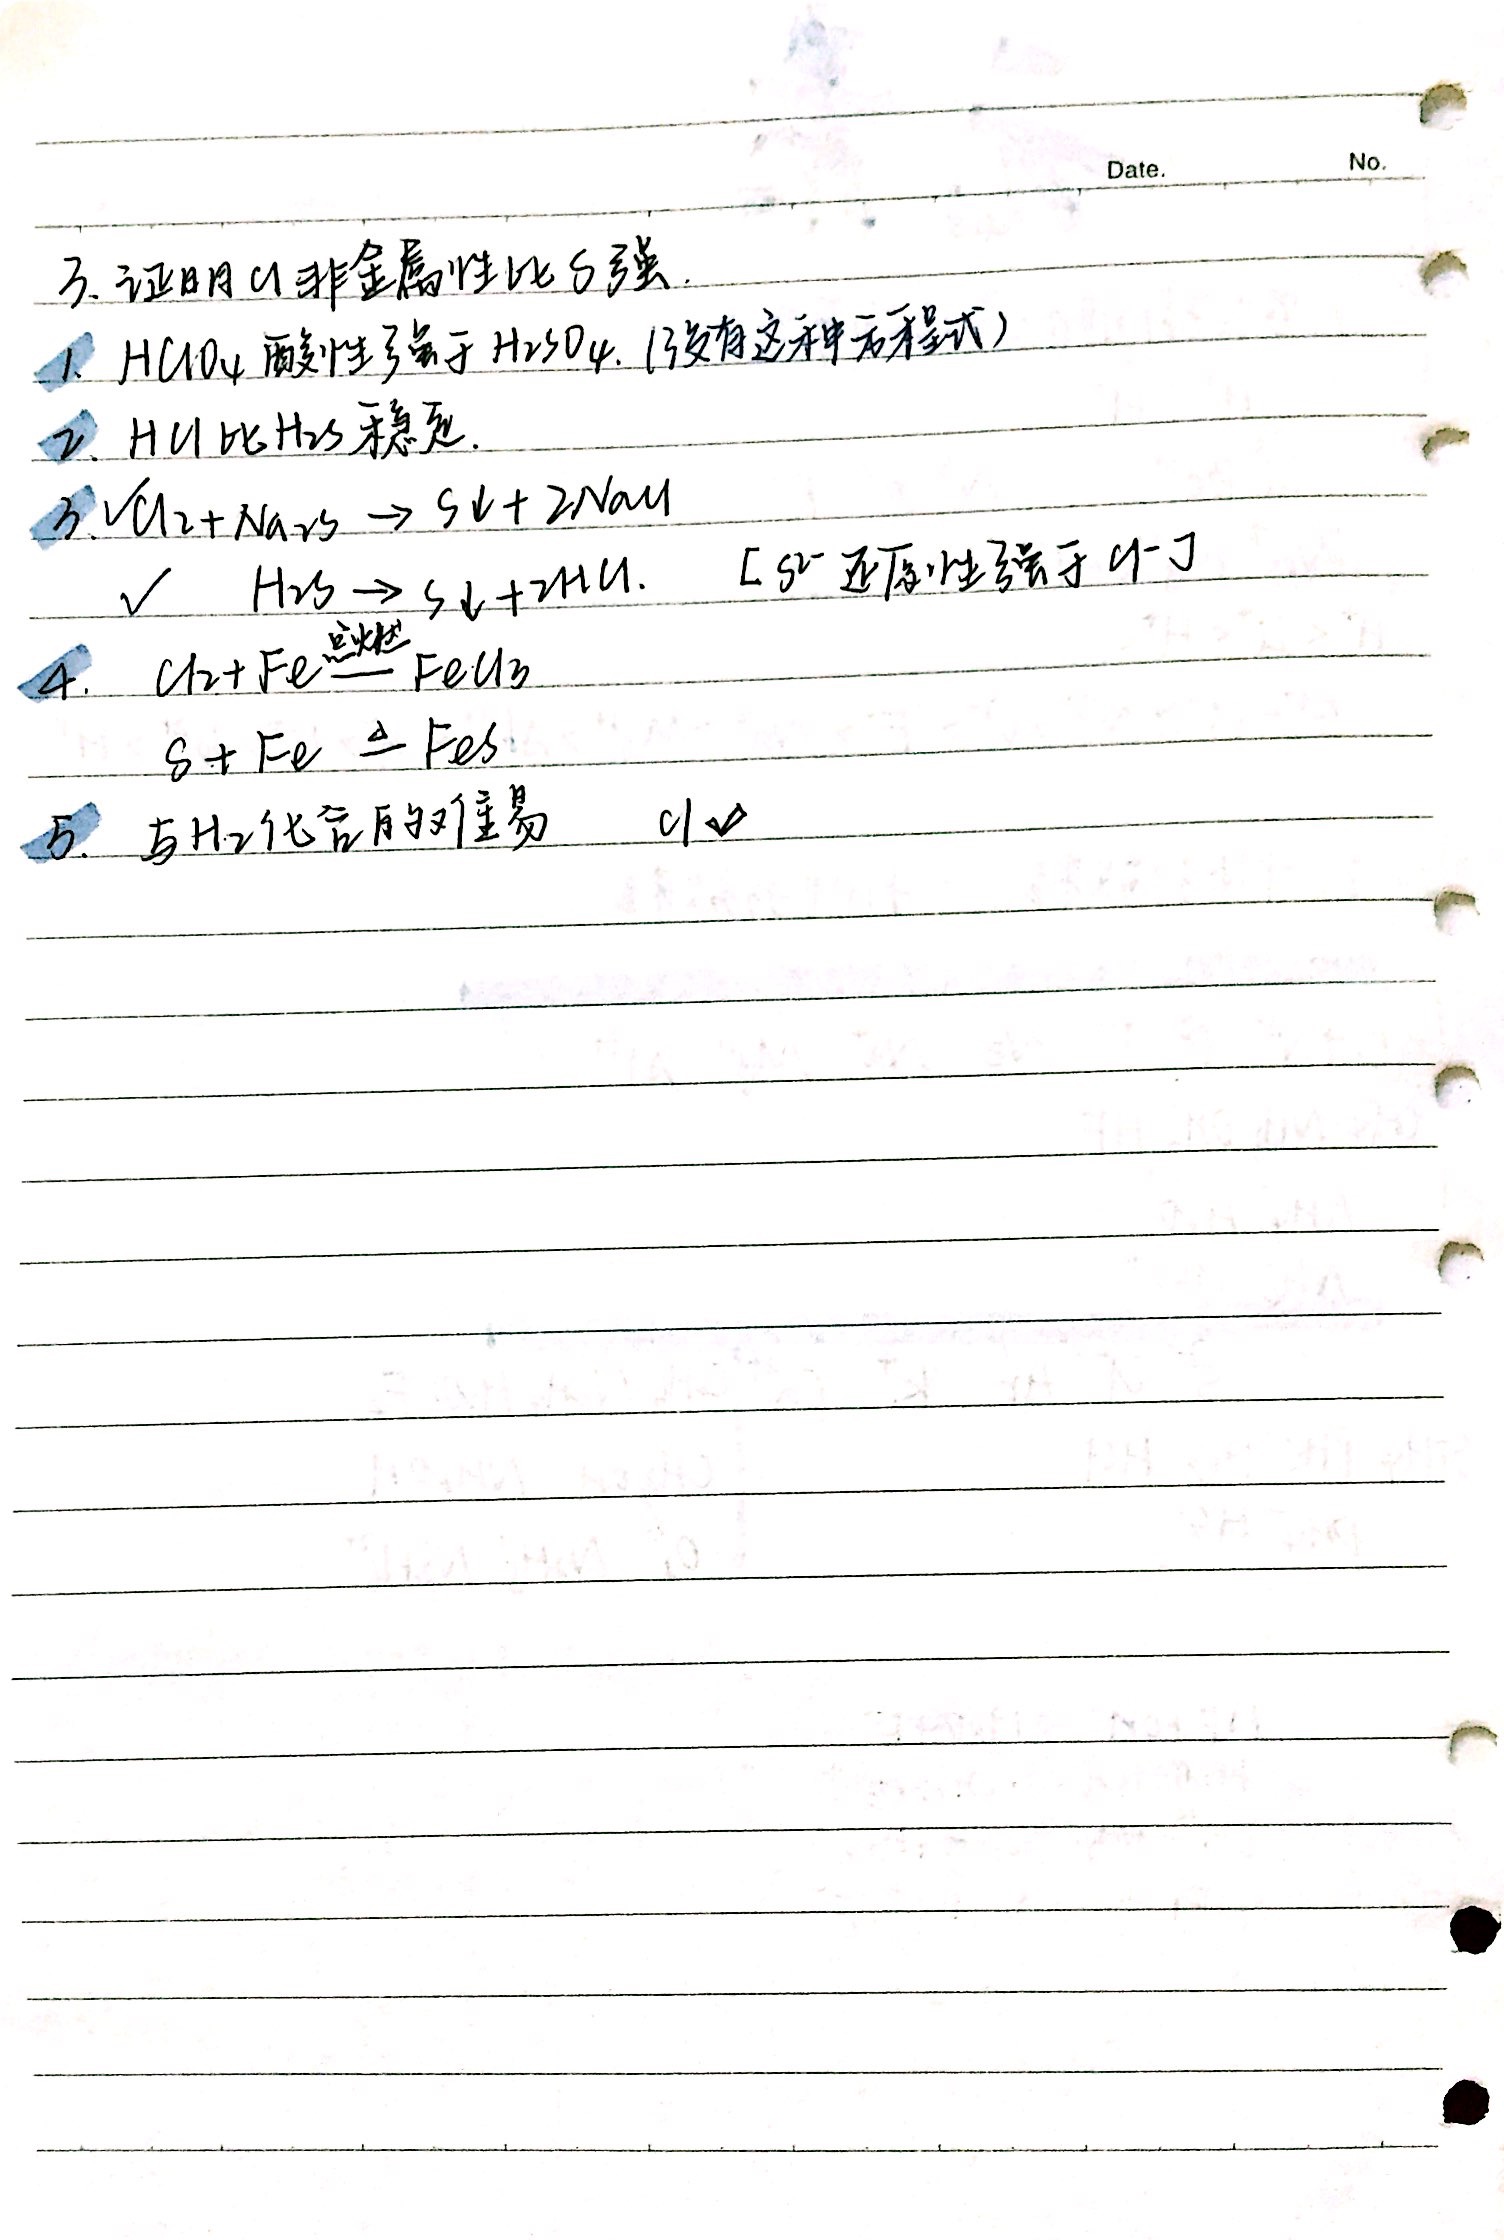 Date. No.
3. 证明Cl非金属性比S强.
1. HClO4 酸性强于H2SO4. (没有这种方程式)
2. HCl比H2S稳定.
3. √Cl2+Na2S → S↓+2NaCl
√ H2S → S↓+2HCl. [S2- 还原性强于Cl-]
4. Cl2+Fe 点燃 FeCl3
S+Fe △ FeS
5. 与H2化合的难易 Cl✓